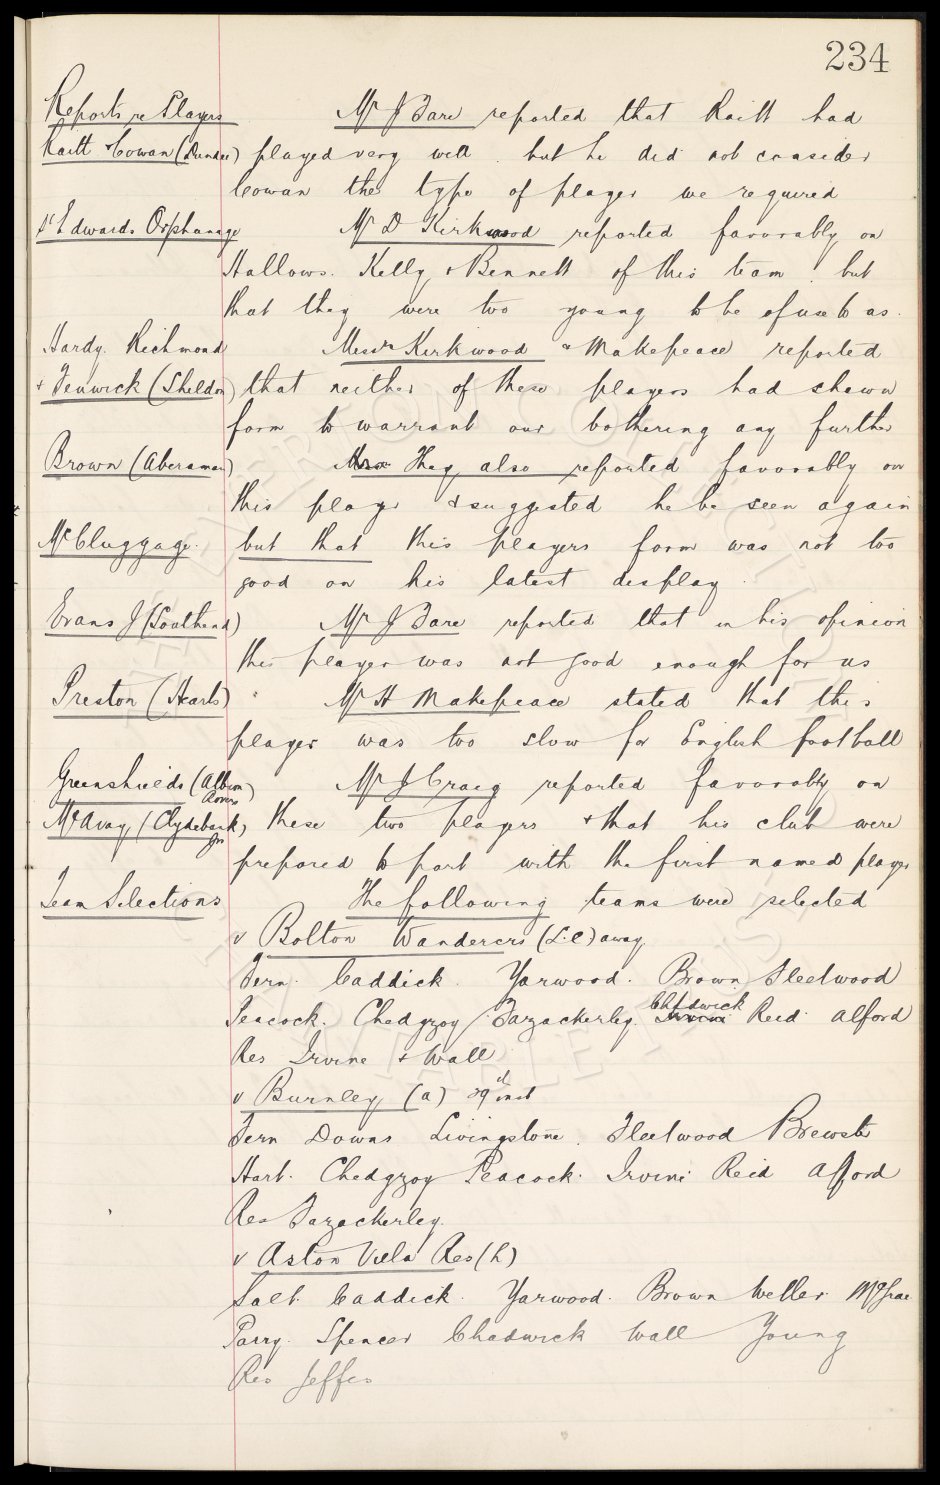 234
Reports re Players Mr J Bare reported that Raitt had
Raitt & Cowan (Dundee) played very well but he did not consider
Cowan the type of player we required
St Edwards Orphanage Mr D Kirkwood reported favorably on
Hallows. Kelly & Bennett of this team but
that they were too young to be of use to us.
Hardy. Richmond Messrs Kirkwood & Makepeace reported
& Fenwick (Sheldon) that neither of these players had shewn
form to warrant our bothering any further
Brown (Aberaman) They also reported favorably on
this player & suggested he be seen again
McCluggage. but that this players form was not too
good on his latest display.
Evans J (Southend) Mr J Bare reported that in his opinion
this player was not good enough for us
Preston (Hearts) " Mr H Makepeace stated that this
player was too slow for English football
Greenshields (Albion Rovers) Mr J Craig reported favorably on
McAvay (Clydebank Jrs) these two players & that his club were
prepared to part with the first named player
Team Selections The following teams were selected
v Bolton Wanderers (L.C) away
Fern. Caddick. Yarwood. Brown Fleetwood
Peacock. Chedgzoy Fazackerley. Chadwick Reid. Alford
Res Irvine & Wall
v Burnley (a) 29th inst
Fern Downs Livingstone. Fleetwood Brewster
Hart. Chedgzoy Peacock. Irvine Reid Alford
Res Fazackerley.
v Aston Villa Res (h)
Salt. Caddick. Yarwood. Brown Weller. McGrae
Parry. Spencer Chadwick Wall Young
Res Jeffes